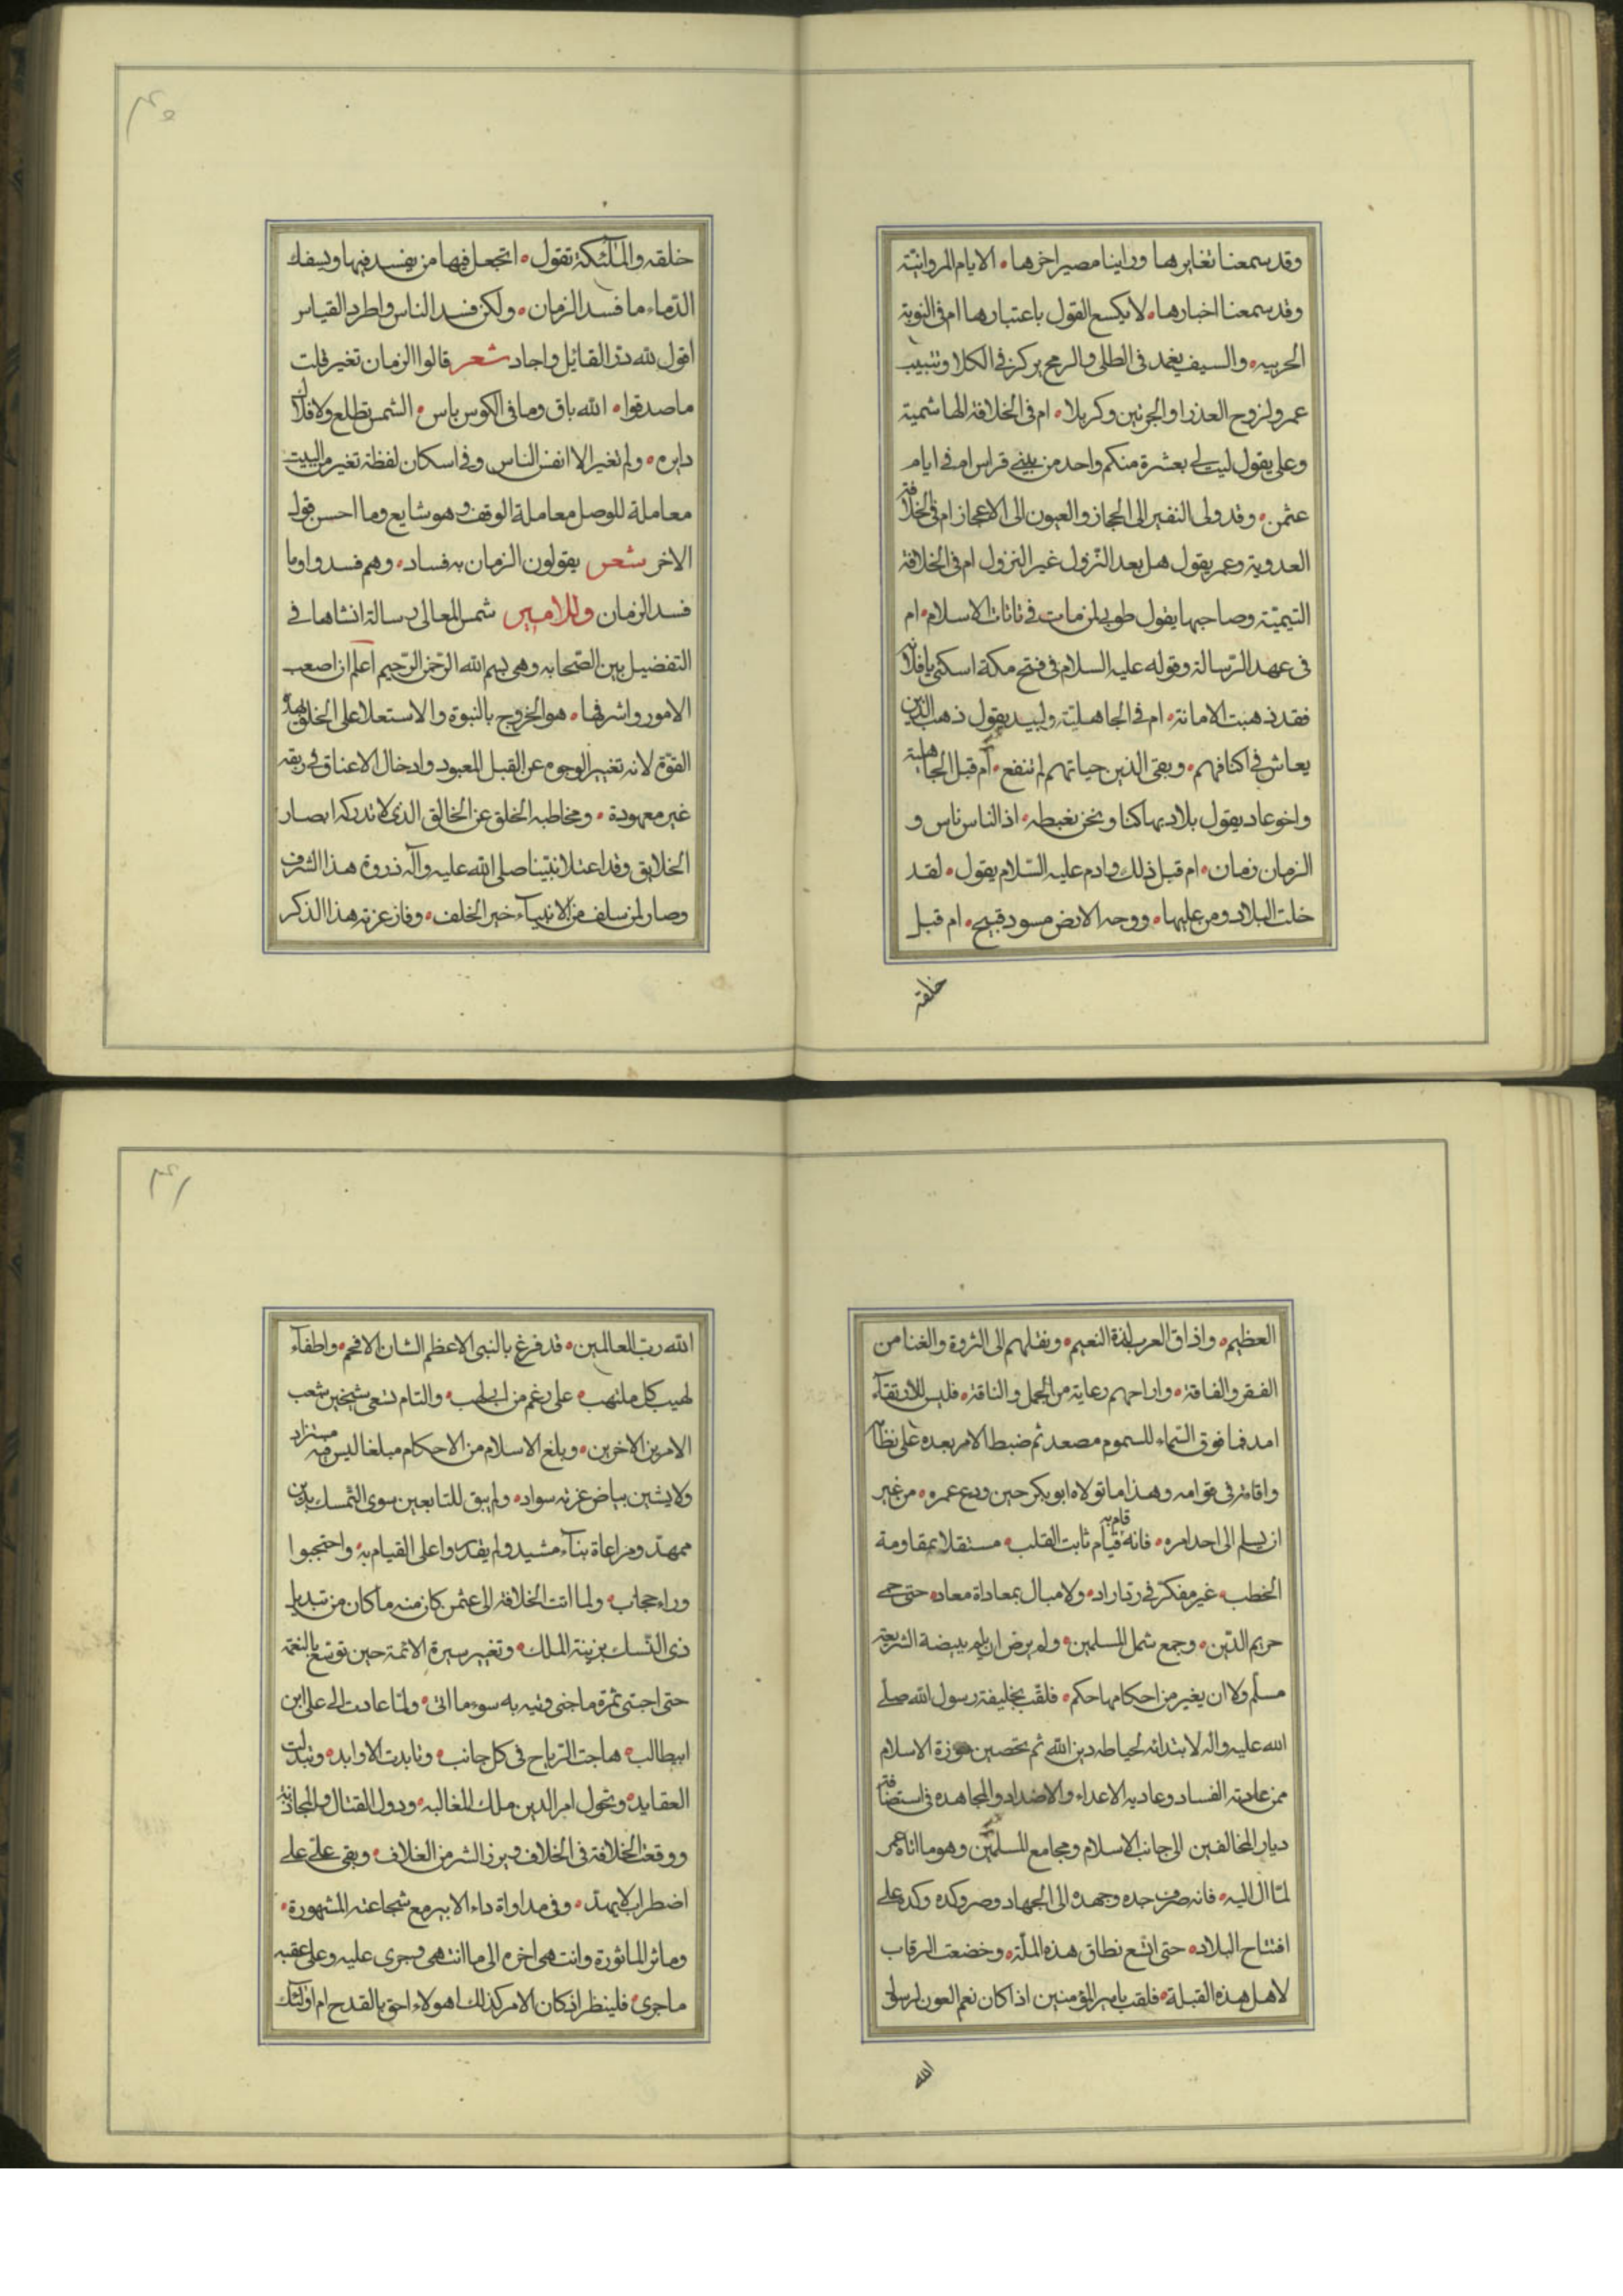 وقد سمعنا تغايرها وراينا مصير اخرها ه الايام المروانية
وقد سمعنا اخبارها ه لا يكسع القول باعتبارها ام فى النوبة
الحربيه ه والسيف يغمد فى الطلى والرمح يركز فى الكلا وتثبيب
عمرو لزوح العذرا والجرتين وكربلا ه ام فى الخلافة الهاشمية
وعلى يقول ليت لى بعشرة منكم واحد من بينى فراس ام فى ايام
عثمن ه وقد ولى النفير الى الحجاز والعيون الى الاعجاز ام فى الخلافة
العدوية وعمر يقول هل بعد النزول غير النزول ام فى الخلافة
التيمية وصاحبها يقول طوبى لمن مات فى نانات الاسلام ه ام
فى عهد الرسالة وقوله عليه السلام فى فتح مكة اسكتى يا فلانة
فقد ذهبت الامانة ه ام فى الجاهلية ولبيد يقول ذهب الذين
يعاش فى اكنافهم ه وبقى الذين حياتهم لم تنفع ه ام قبل الجاهلية
واخو عاد يقول بلاد بها كنا ونحن نغبطه ه اذ الناس ناس و
الزمان زمان ه ام قبل ذلك وادم عليه السلام يقول ه لقد
خلت البلاد ومن عليها ه ووجه الارض مسود قبيح ه ام قبل
خلقه
خلقه والملئكة تقول ه اتجعل فيها من يفسد فيها ويسفك
الدماء ما فسد الزمان ه ولكن فسد الناس واطرد القياس
اقول لله در القائل واجاد شعر قالوا الزمان تغير قلت
ما صدقوا ه الله باق وما فى الكوس باس ه الشمس تطلع والافلاك
دايره ه ولم تغير الا انفس الناس وفى اسكان لفظة تغير من البيت
معاملة للوصل معاملة الوقف وهو شايع وما احسن قول
الاخر شعر يقولون الزمان به فساد ه وهم فسدوا وما
فسد الزمان وللامير شمس المعالى رسالة انشاها فى
التفضيل بين الصحابه وهى بسم الله الرحمن الرحيم اعلم ان اصعب
الامور واشرفها ه هو الخروج بالنبوة والاستعلا على الخلق بهذه
القوة لانه تغيير الوجوه عن القبل المعبود وادخال الاعناق فى ربقه
غير معهودة ه ومخاطبه الخلق عن الخالق الذى لا تدركه ابصار
الخلايق وقد اعتلا نبينا صلى الله عليه وآله ذروة هذا الشرف
وصار لمن سلف من الانبياء خير الخلف ه وفاز عزته هذا الذكر
العظيم ه واذاق العرب لذة النعيم ه ونقلهم الى الثروة والغنا من
الفقر والفاقة ه واراحهم رعاية من الجمل والناقة ه فليس للارتقاء
امد فما فوق السماء للسموم مصعد ثم ضبط الامر بعده على نظامه
واقامته فى قوامه وهذا ما تولاه ابو بكر حين ودع عمره ه من غير
ان يسلم الى احد امره ه فانه قام به قيام ثابت القلب ه مستقلا بمقاومة
الخطب ه غير مفكر فى رد اراد ه ولا مبال بمعاداة معاد ه حتى حمى
حريم الدين ه وجمع شمل المسلمين ه ولم يرض ان يلم ببيضة الشريعة
مسلم ولا ان يغير من احكامها حكم ه فلقب بخليفة رسول الله صلى
الله عليه واله لابتدائه لحياطه دين الله ثم تحصين حوزة الاسلام
ممن عاديته الفساد وعاديه الاعداء والاضداد والمجاهده فى استضافة
ديار المخالفين الى جانب الاسلام ومجامع المسلمين وهو ما اتاه عمر
لما ال اليه ه فانه صرف حده وجهده الى الجهاد وصر وكده وكده على
افتتاح البلاد ه حتى اتسع نطاق هذه الملة ه وخضعت الرقاب
لاهل هذه القبلة ه فلقب بامير المؤمنين اذ كان نعم العون لرسول
الله
الله رب العالمين ه قد فرغ بالنبى الاعظم الشان الافخم ه واطفاء
لهيب كل ملتهب ه على رغم من ابى لهب ه والتام تسعى شيخين شعب
الامرين الاخرين ه وبلغ الاسلام من الاحكام مبلغا ليس فيه مستزاد
ولا يشين بياض غرته سواد ه ولم يبق للتابعين سوى التمسك بدين
ممهد ومراعاة بناء مشيد ولم يقدروا على القيام به ه واحتجبوا
وراء حجاب ه ولما اتت الخلافة الى عثمن كان منه ما كان من تبديل
ذى النسك بزينة الملك ه وتغيير سيرة الائمة حين توسع بالنعمة
حتى اجتنى ثمرة ما جنى وتيه به سوء ما اتى ه ولما عادت الى على ابن
ابيطالب ه هاجت الرياح فى كل جانب ه وتابدت الاوابد ه وتبدلت
العقايد ه وتحول امر الدين ملك المغالبه ه ودول القتال والمجاذبة
ووقعت الخلافة فى الخلاف ه وبرز الشر من الغلاف ه وبقى على على
اضطراب لا يهتد ه وفى مداواة داء لا يبر مع شجاعته المشهورة ه
وماثره الماثورة وانتهى اخره الى ما انتهى ه وجرى عليه وعلى عقبه
ما جرى ه فلينظر اذ كان الامر كذلك اهولاء احق بالقدح ام اولئك